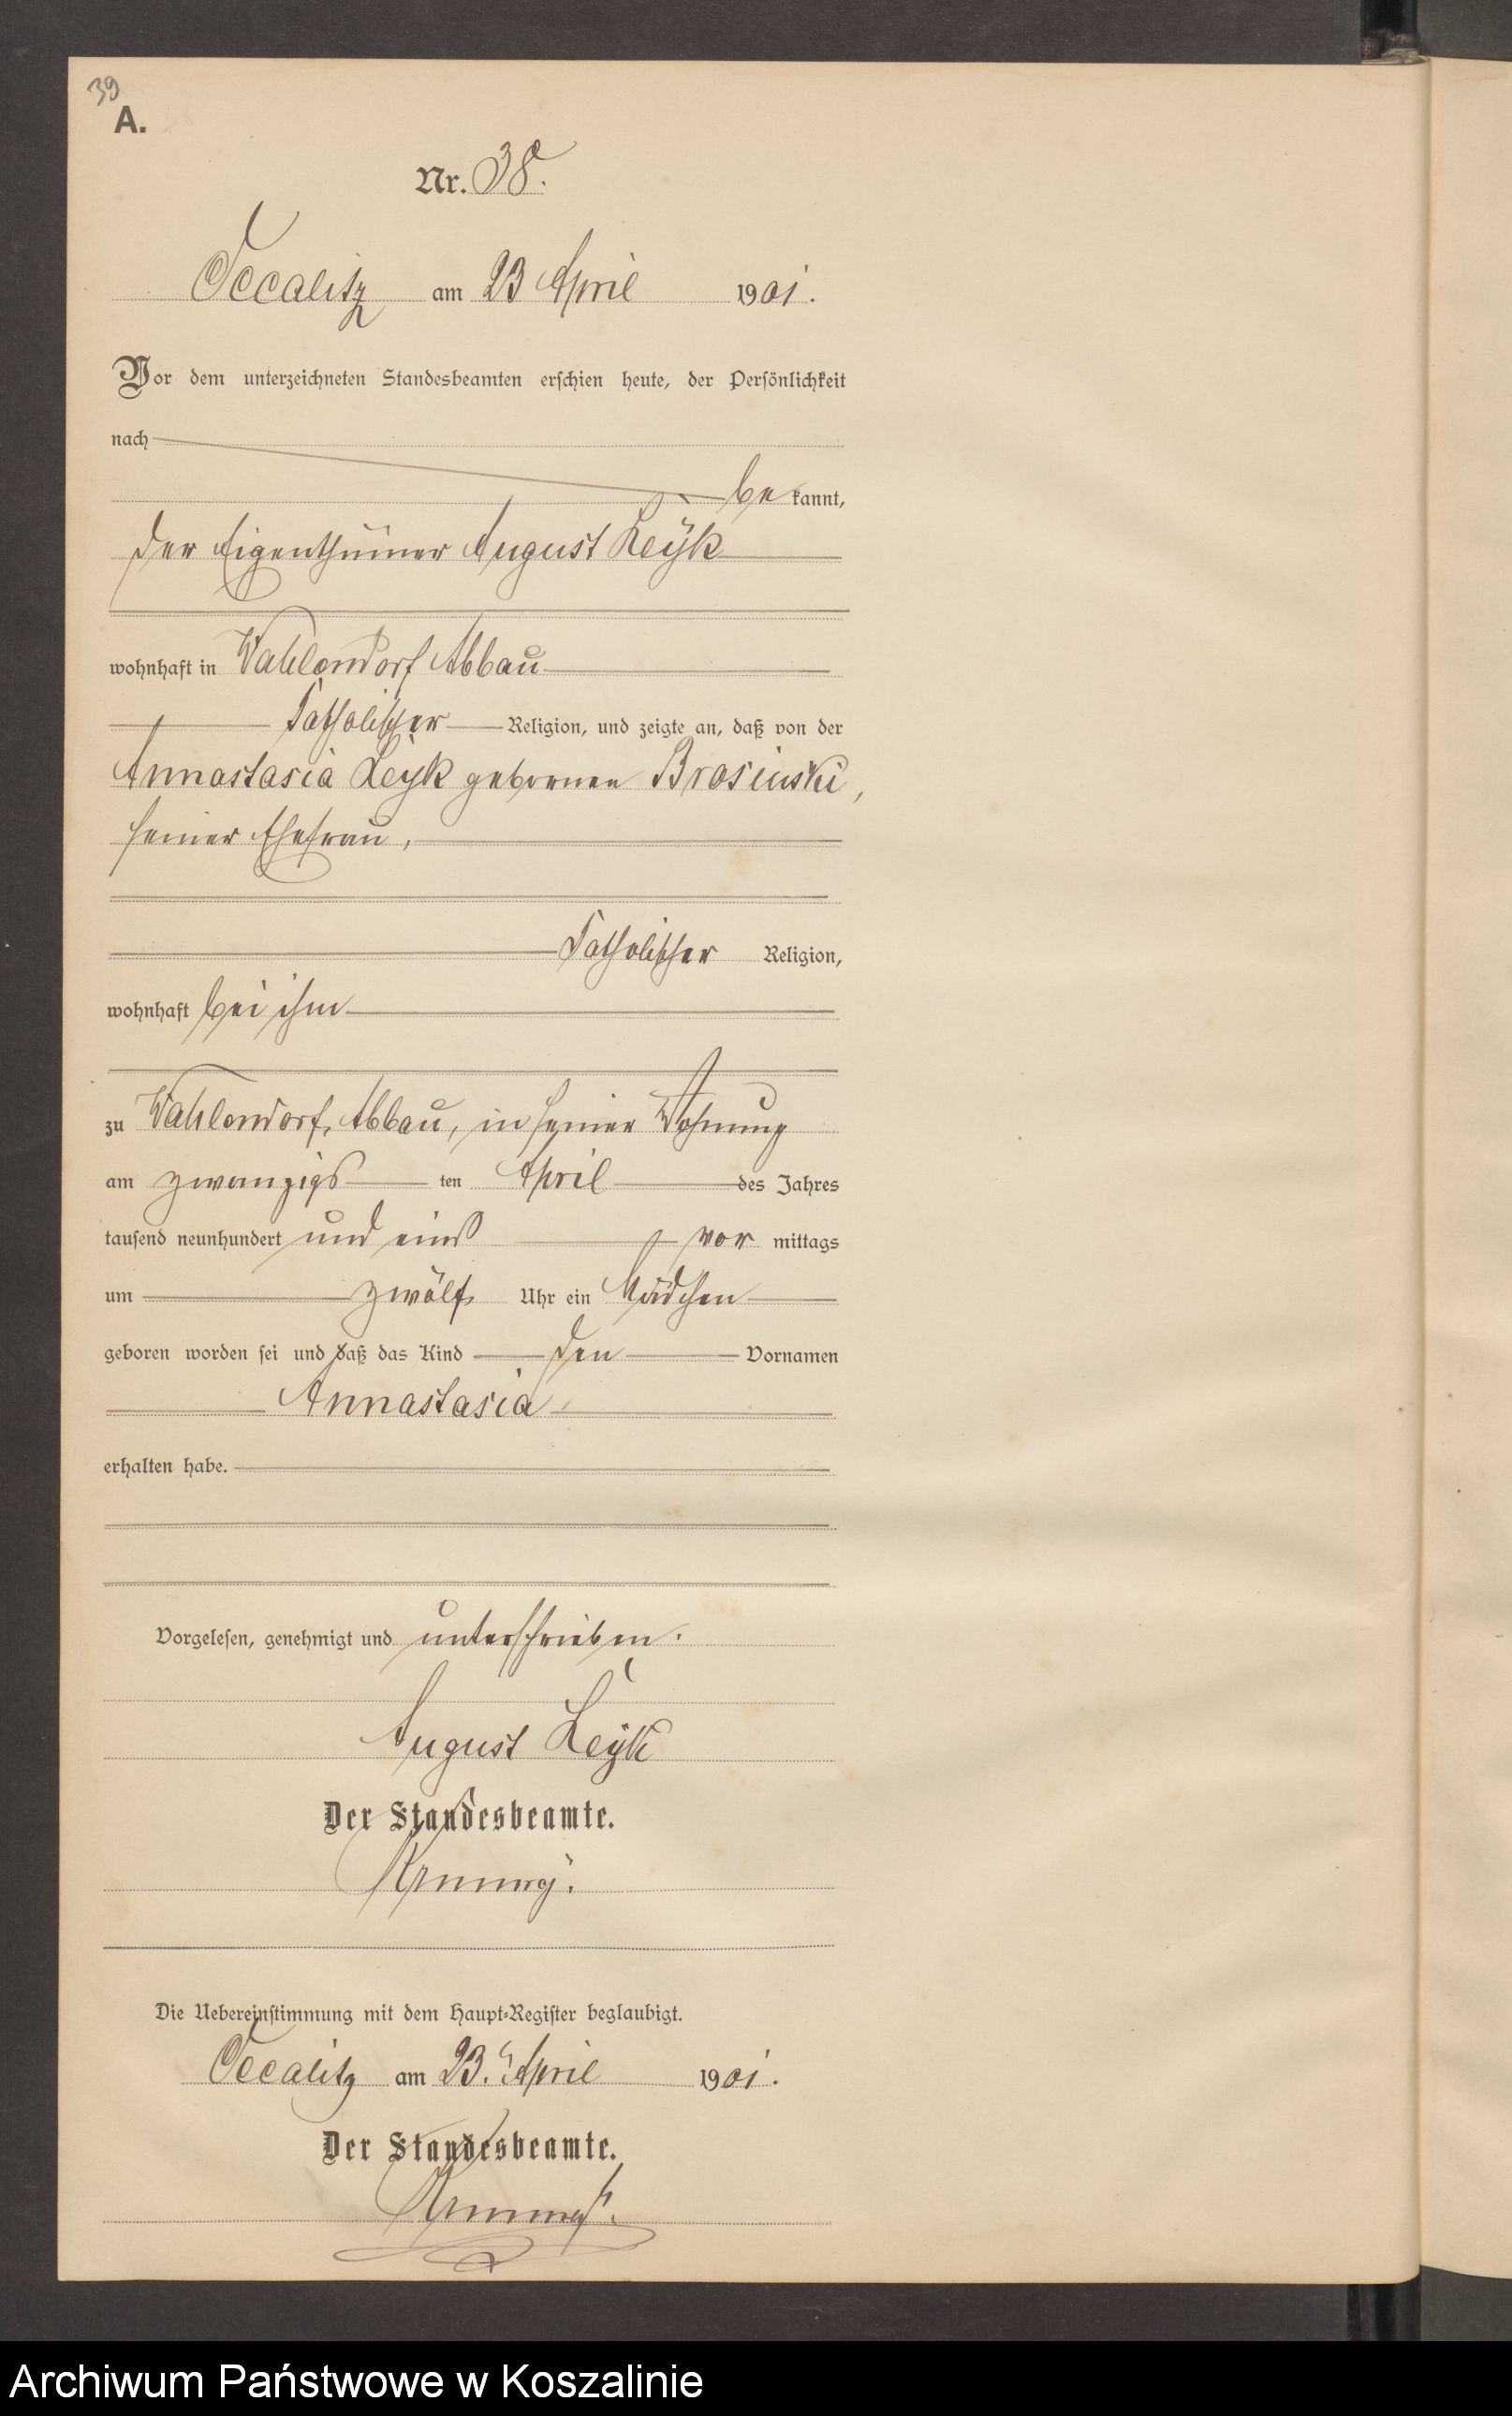 39
A.
Nr. 38.
Oecalitz am 23 April 1901.
Vor dem unterzeichneten Standesbeamten erschien heute, der Persönlichkeit
nach
be kannt,
der Eigenthümer August Leyk
wohnhaft in Wahlendorf Abbau
katholischer Religion, und zeigte an, daß von der
Annastasia Leyk geborenen Brosinski,
seiner Ehefrau,
katholischer Religion,
wohnhaft bei ihm
zu Wahlendorf, Abbau, in seiner Wohnung
am zwanzigs ten April des Jahres
tausend neunhundert und eins vor mittags
um zwölf Uhr ein Mädchen
geboren worden sei und daß das Kind den Vornamen
Annastasia
erhalten habe.
Vorgelesen, genehmigt und unterschrieben.
August Leyk
Der Standesbeamte.
Die Uebereinstimmung mit dem Haupt-Register beglaubigt.
Oecalitz am 23. April 1901.
Der Standesbeamte.
Archiwum Państwowe w Koszalinie